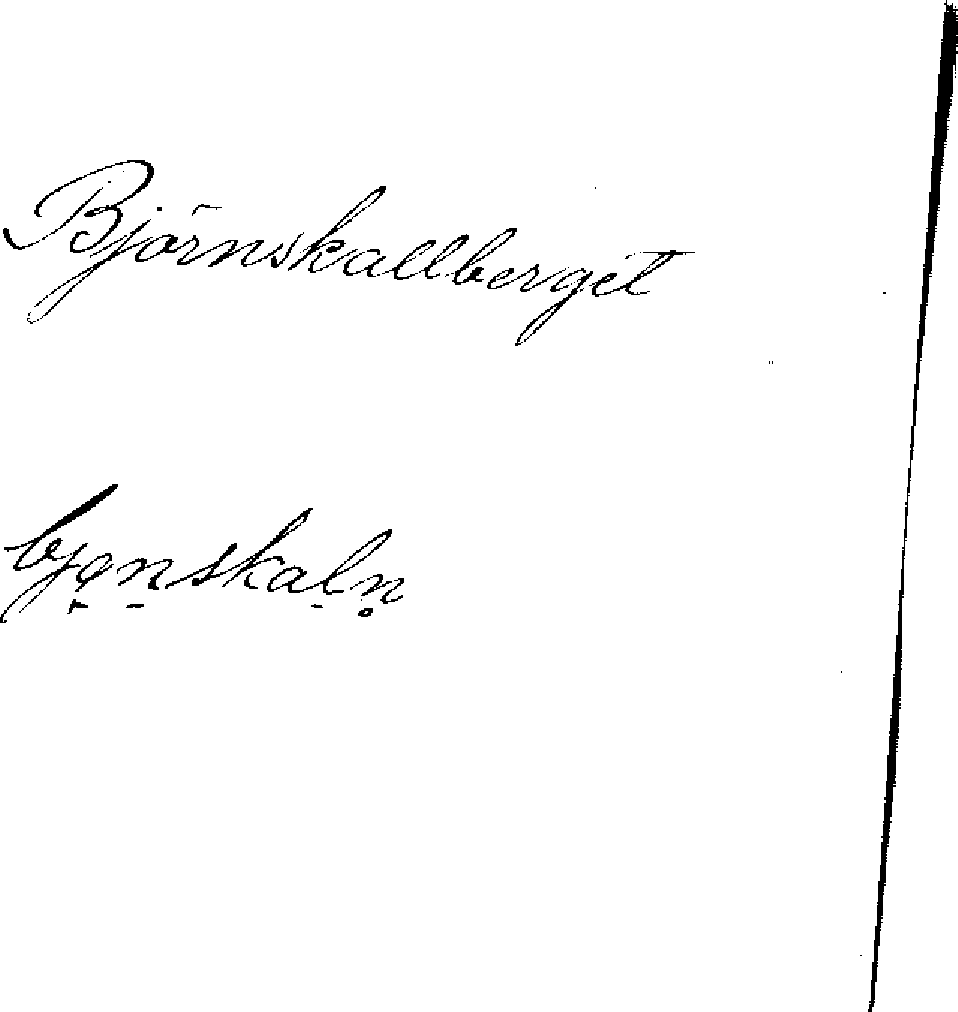 Björnskallberget
bjɵ̞n̠skal̠n̥